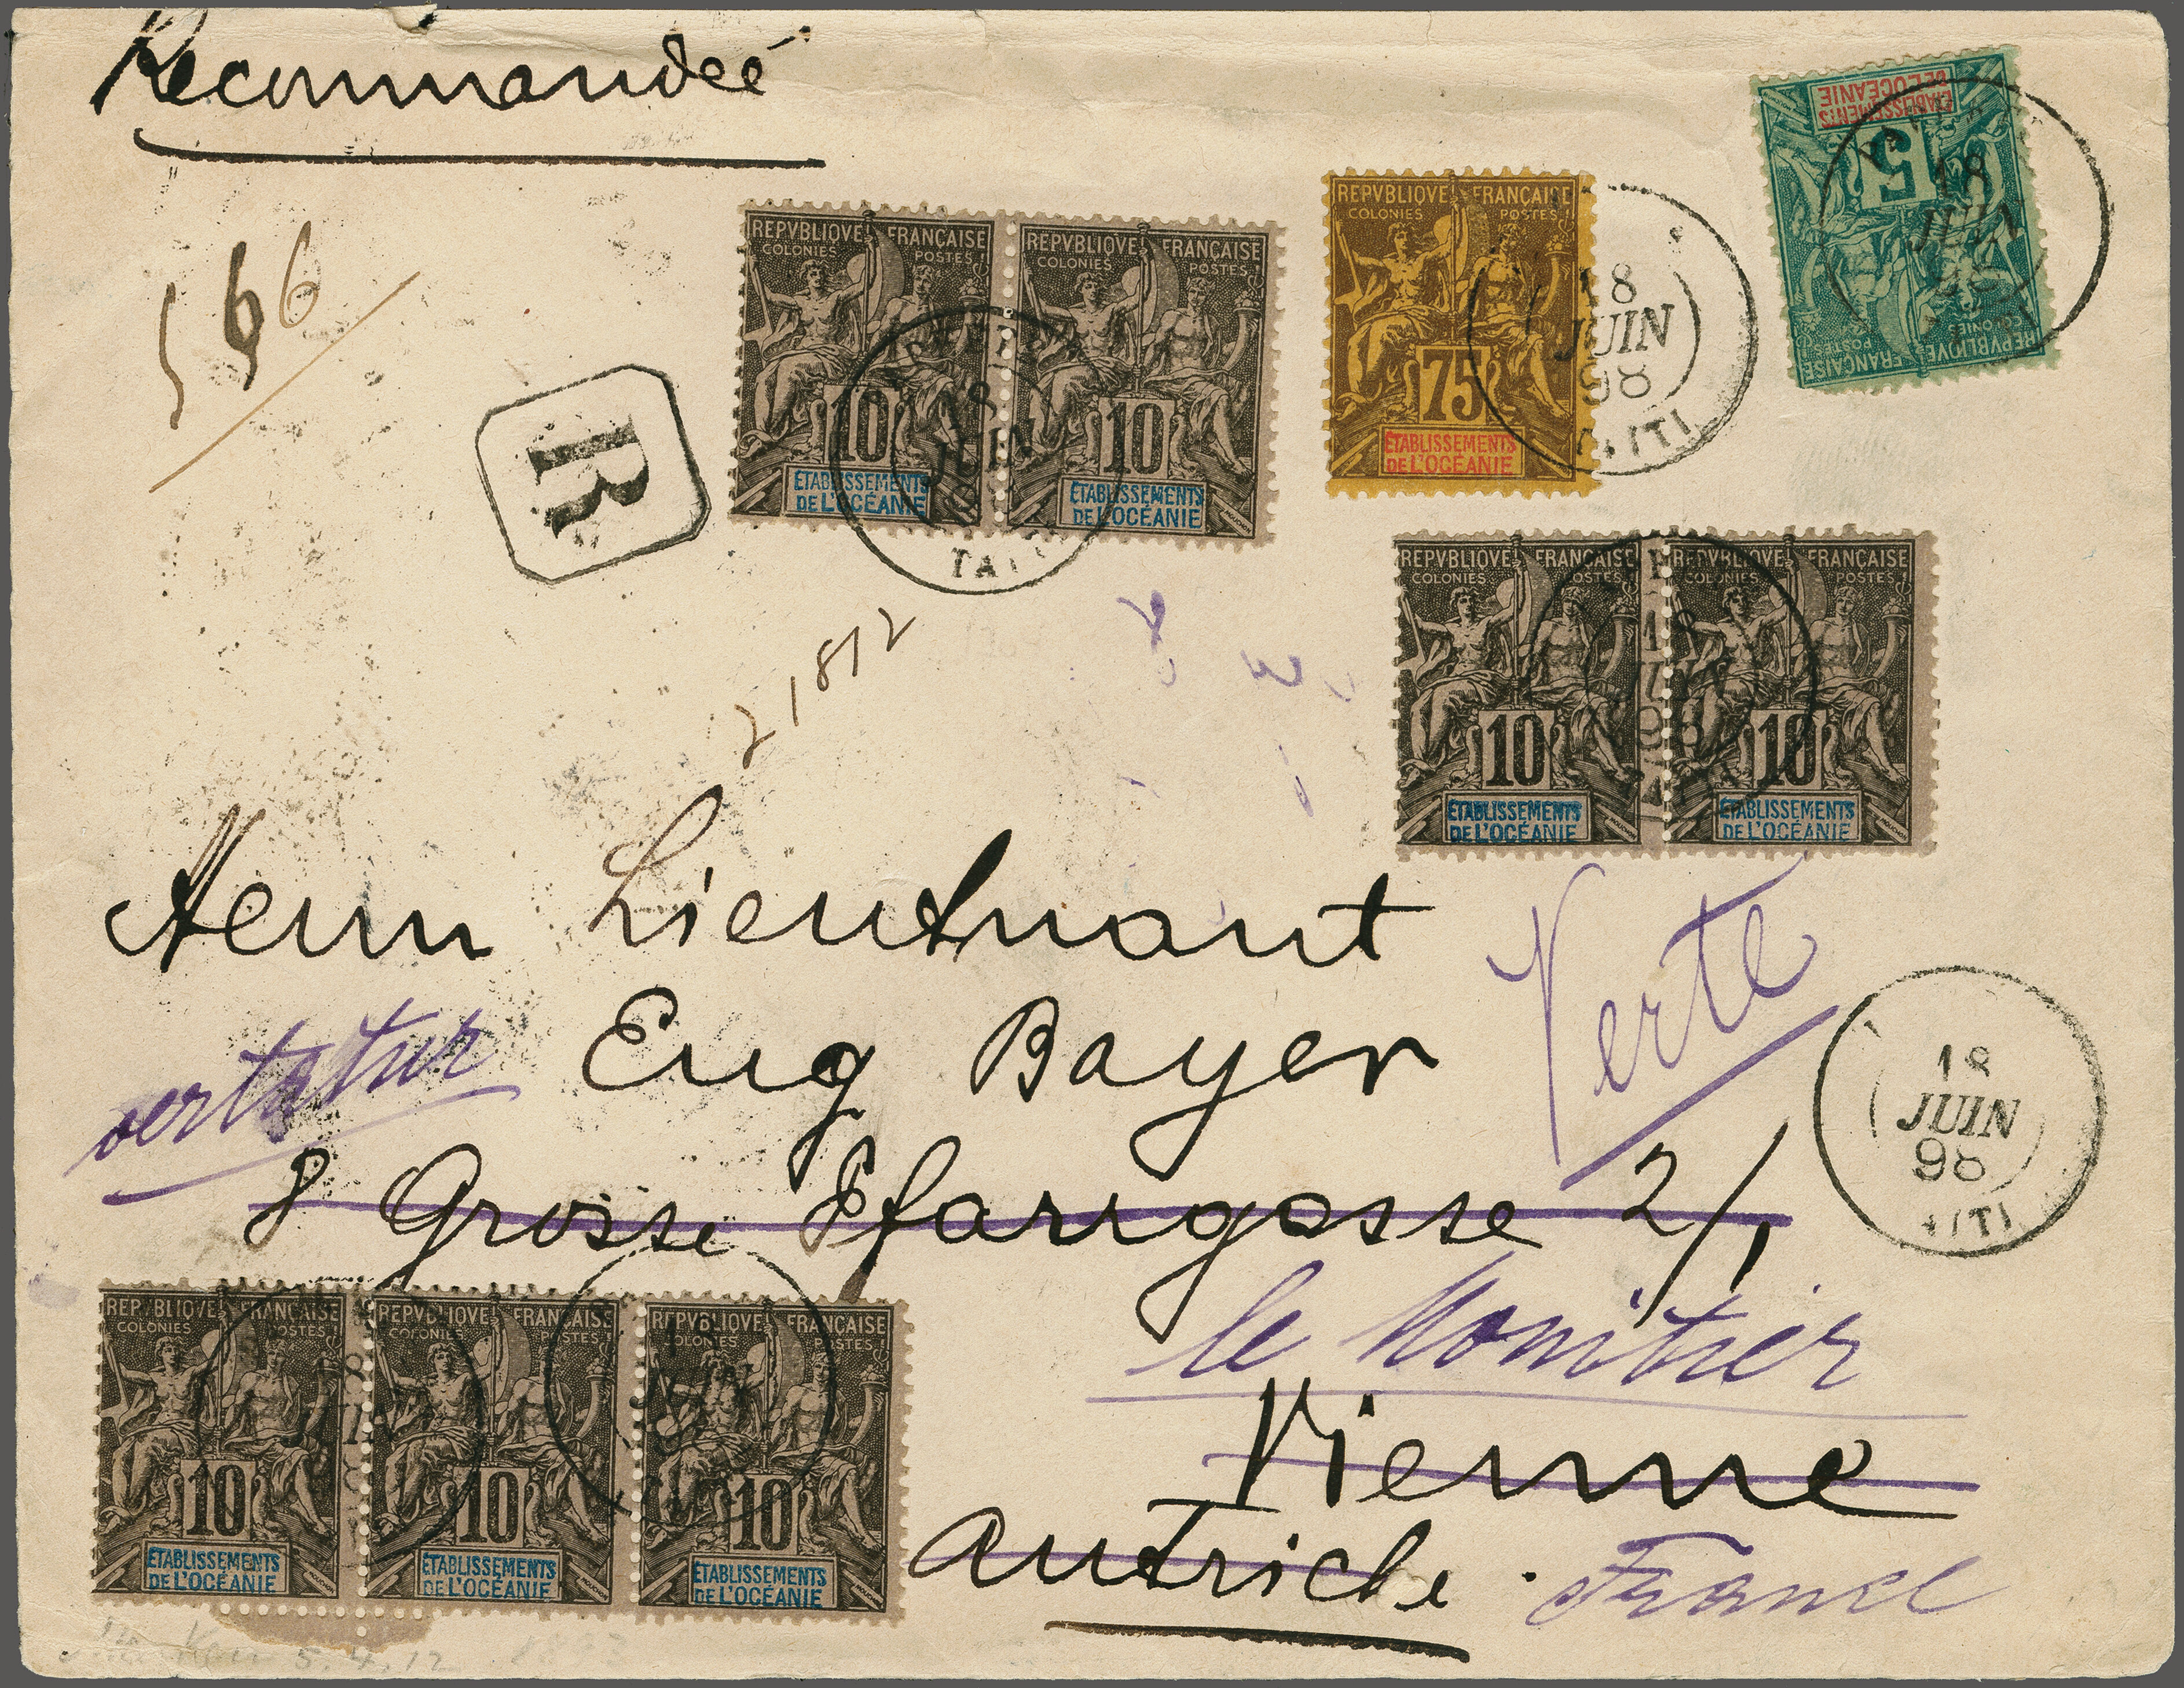 Recommandeé
566
R
REPVBLIQVE FRANÇAISE
COLONIES POSTES
10
ÉTABLISSEMENTS
DE L'OCÉANIE
MOUCHON
REPVBLIQVE FRANÇAISE
COLONIES POSTES
10
ÉTABLISSEMENTS
DE L'OCÉANIE
MOUCHON
18
JUIN
TAITI
REPVBLIQVE FRANÇAISE
COLONIES POSTES
75
ÉTABLISSEMENTS
DE L'OCÉANIE
18
JUIN
98
REPVBLIQVE FRANÇAISE
COLONIES POSTES
5
ÉTABLISSEMENTS
DE L'OCÉANIE
18
JUIN
REPVBLIQVE FRANÇAISE
COLONIES POSTES
10
ÉTABLISSEMENTS
DE L'OCÉANIE
MOUCHON
REPVBLIQVE FRANÇAISE
COLONIES POSTES
10
ÉTABLISSEMENTS
DE L'OCÉANIE
MOUCHON
18
98
21812
Herrn Lieutnant
Eug Bayer
Verte
vertatur
8 Grosse Pfarrgasse 2/1
18
JUIN
98
le Monitier
Vienne
Autriche.
France
REPVBLIQVE FRANÇAISE
COLONIES POSTES
10
ÉTABLISSEMENTS
DE L'OCÉANIE
MOUCHON
REPVBLIQVE FRANÇAISE
COLONIES POSTES
10
ÉTABLISSEMENTS
DE L'OCÉANIE
MOUCHON
REPVBLIQVE FRANÇAISE
COLONIES POSTES
10
ÉTABLISSEMENTS
DE L'OCÉANIE
MOUCHON
5.4.12